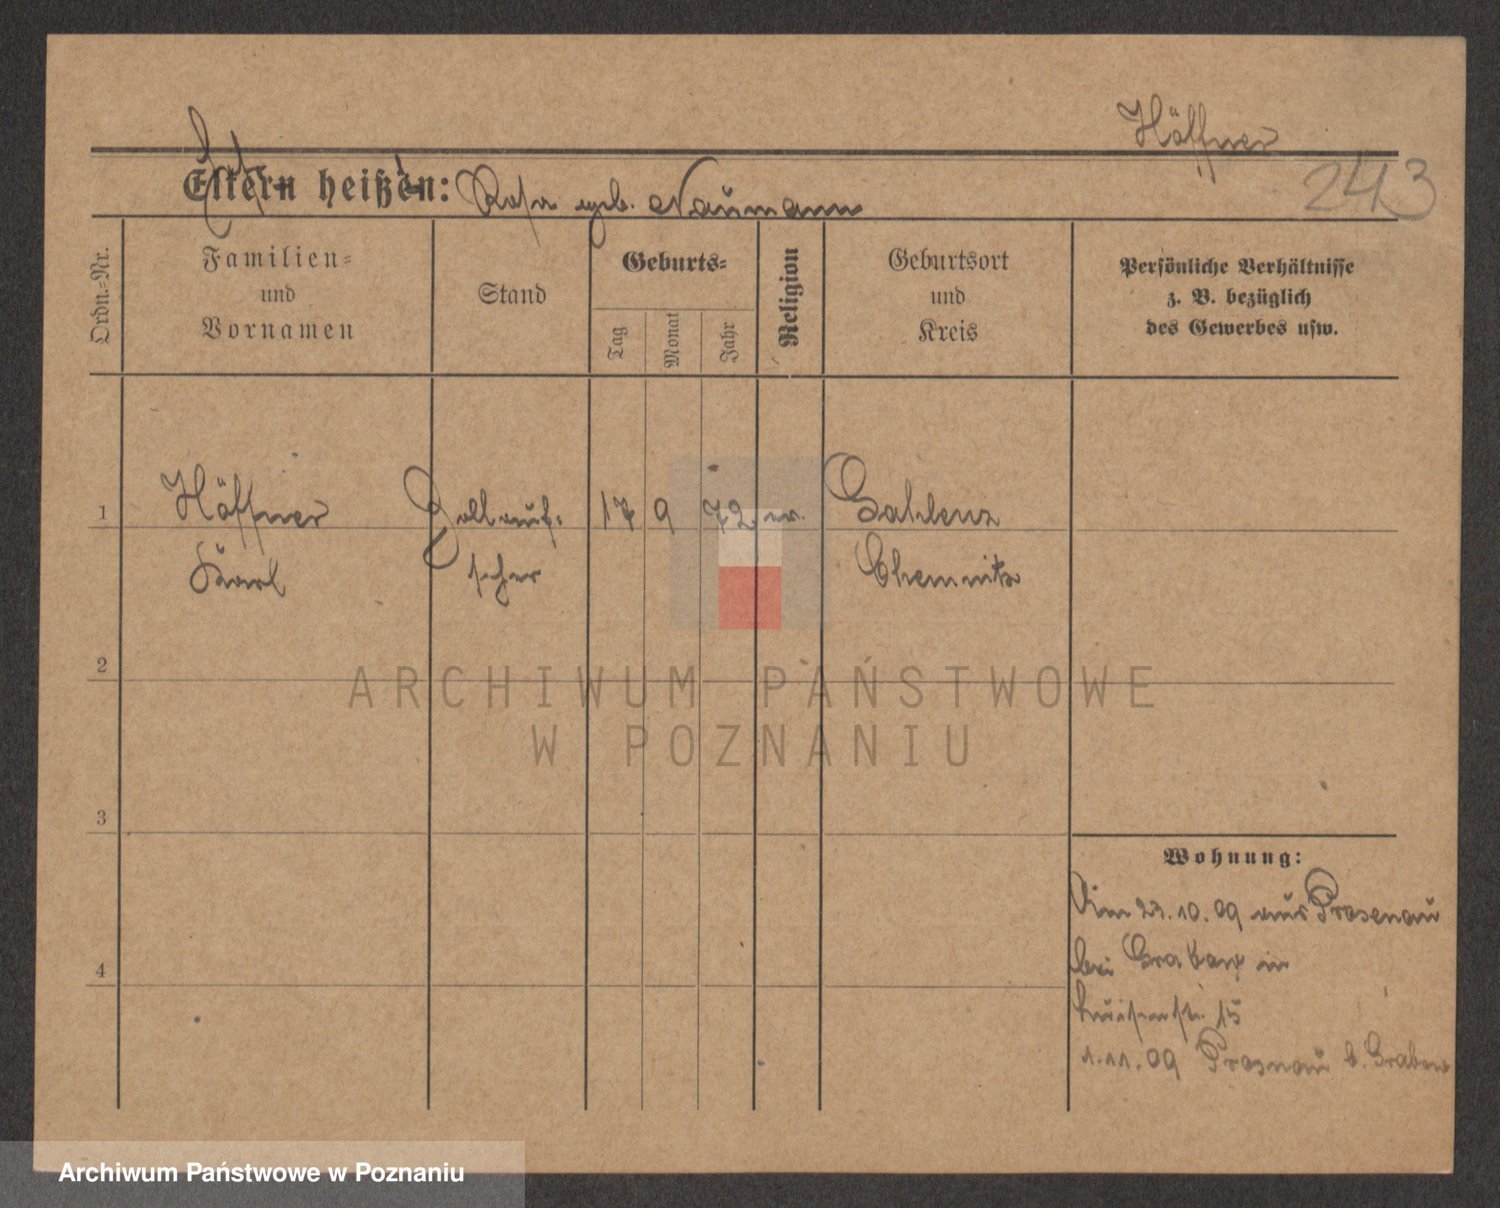 Höffner
243
Eltern heißen: Rosa geb. Naumann
Ordn.-Nr.
Familien-
und
Vornamen
Stand
Geburts-
Tag
Monat
Jahr
Religion
Geburtsort
und
Kreis
Persönliche Verhältnisse
z. B. bezüglich
des Gewerbes usw.
1
Höffner
Karl
Zollauf-
seher
17
9
72
ev.
Gahlenz
Chemnitz
2
3
4
ARCHIWUM PAŃSTWOWE
W POZNANIU
Wohnung:
Am 23.10.09 aus Prosenau
bei Grabow in
Luisenstr. 15
1.11.09 Prosnau b. Grabow
Archiwum Państwowe w Poznaniu